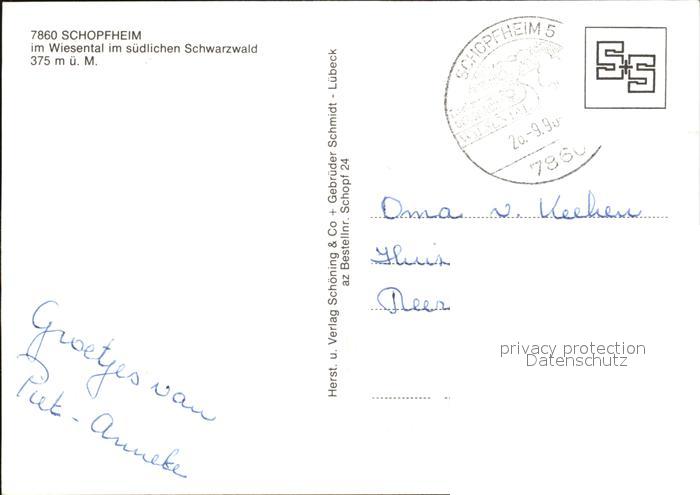 7860 SCHOPFHEIM
im Wiesental im südlichen Schwarzwald
375 m ü. M.
SCHOPFHEIM 5
20.-9.90-
7860
S+S
Herst. u. Verlag Schöning & Co + Gebrüder Schmidt - Lübeck
az Bestellnr. Schopf 24
Oma v. Keeken
Huis
privacy protection
Datenschutz
Groetjes van
Piet - Anneke